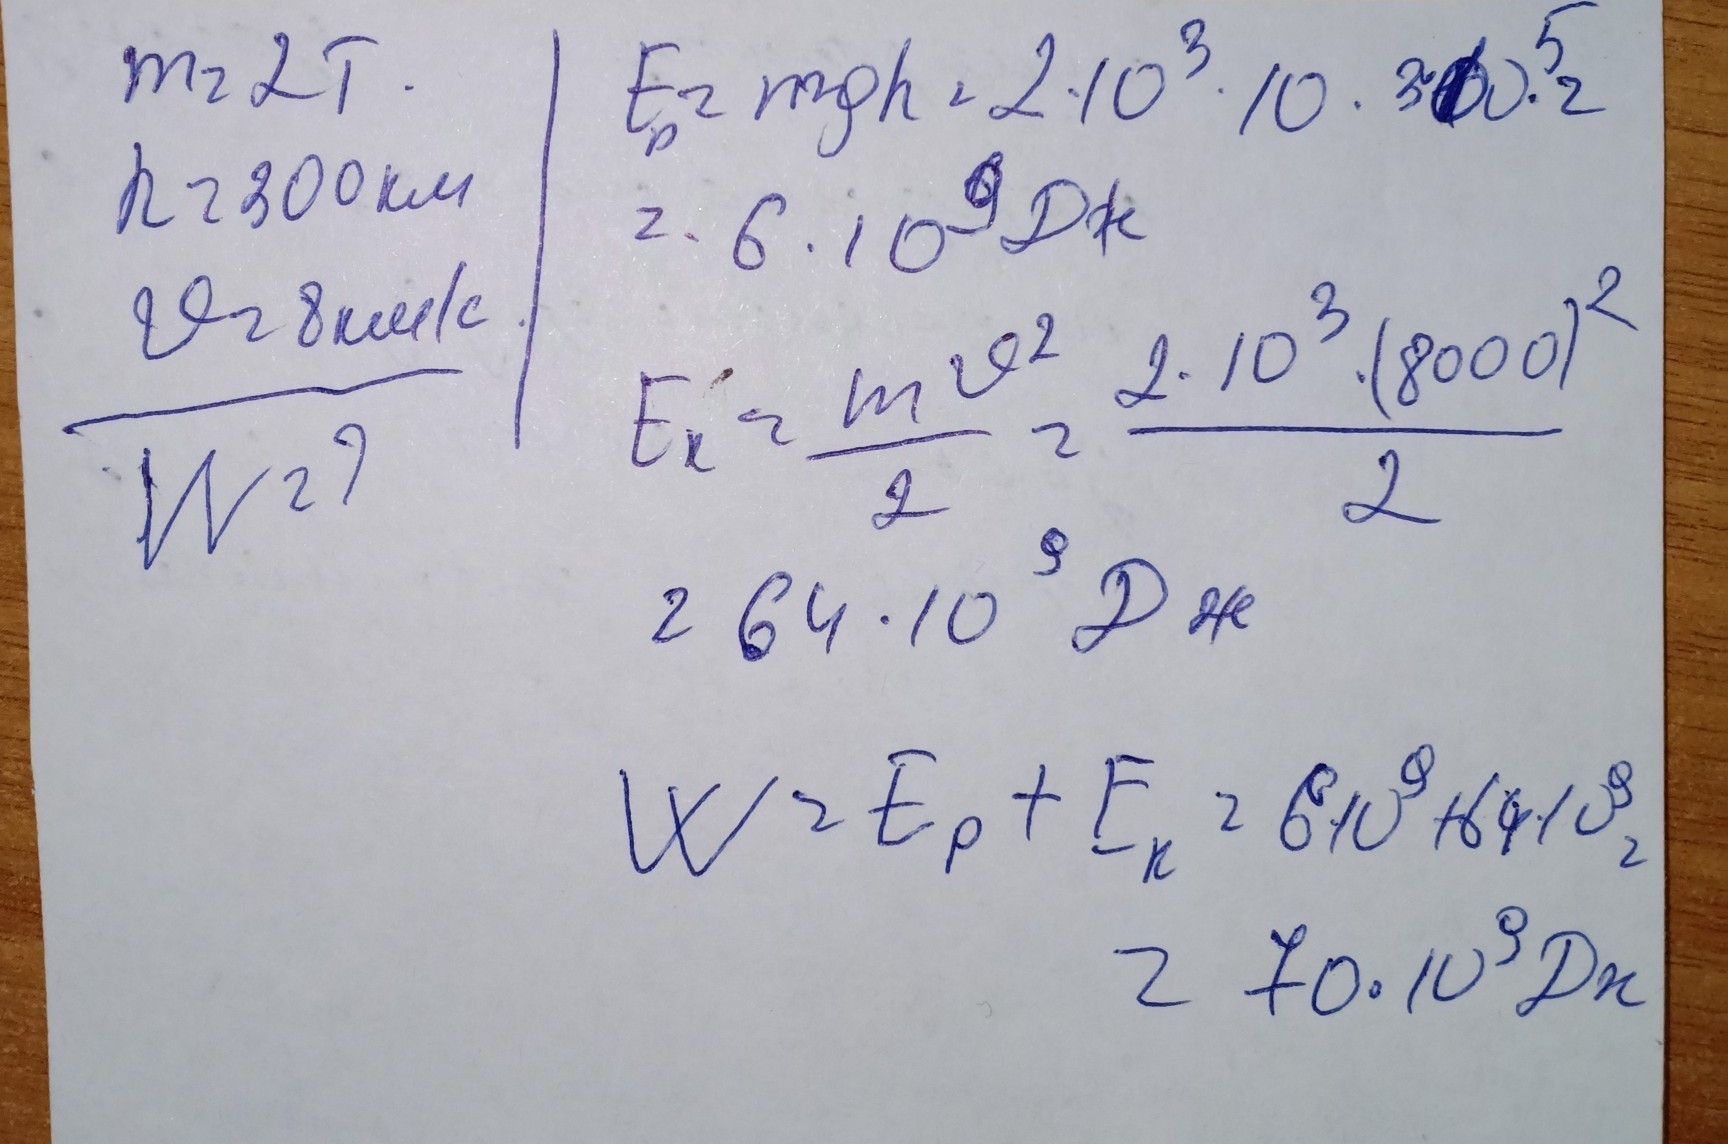 m = 2т.
h = 300км
υ = 8км/с
W = ?
Eₚ = mgh = 2·10³·10·3·10⁵ =
= 6·10⁹ Дж
Eₖ = mυ²/2 = 2·10³·(8000)²/2
= 64·10⁹ Дж
W = Eₚ + Eₖ = 6·10⁹ + 64·10⁹ =
= 70·10⁹ Дж